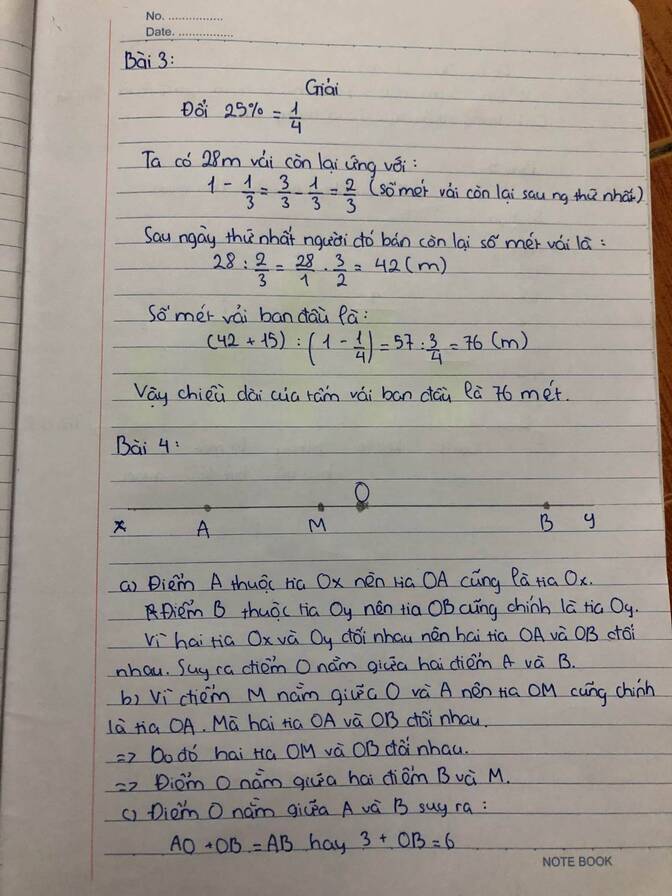 No. ................
Date. ................
Bài 3:
Giải
Đổi 25% = 1/4
Ta có 28m vải còn lại ứng với:
1 - 1/3 = 3/3 - 1/3 = 2/3 (số mét vải còn lại sau ng thứ nhất)
Sau ngày thứ nhất người đó bán còn lại số mét vải là:
28 : 2/3 = 28/1 . 3/2 = 42 (m)
Số mét vải ban đầu là:
(42 + 15) : (1 - 1/4) = 57 : 3/4 = 76 (m)
Vậy chiều dài của tấm vải ban đầu là 76 mét.
Bài 4:
O
x A M B y
a) Điểm A thuộc tia Ox nên tia OA cũng là tia Ox.
Điểm B thuộc tia Oy nên tia OB cũng chính là tia Oy.
Vì hai tia Ox và Oy đối nhau nên hai tia OA và OB đối
nhau. Suy ra điểm O nằm giữa hai điểm A và B.
b) Vì điểm M nằm giữa O và A nên tia OM cũng chính
là tia OA. Mà hai tia OA và OB đối nhau.
=> Do đó hai tia OM và OB đối nhau.
=> Điểm O nằm giữa hai điểm B và M.
c) Điểm O nằm giữa A và B suy ra:
AO + OB = AB hay 3 + OB = 6
NOTE BOOK